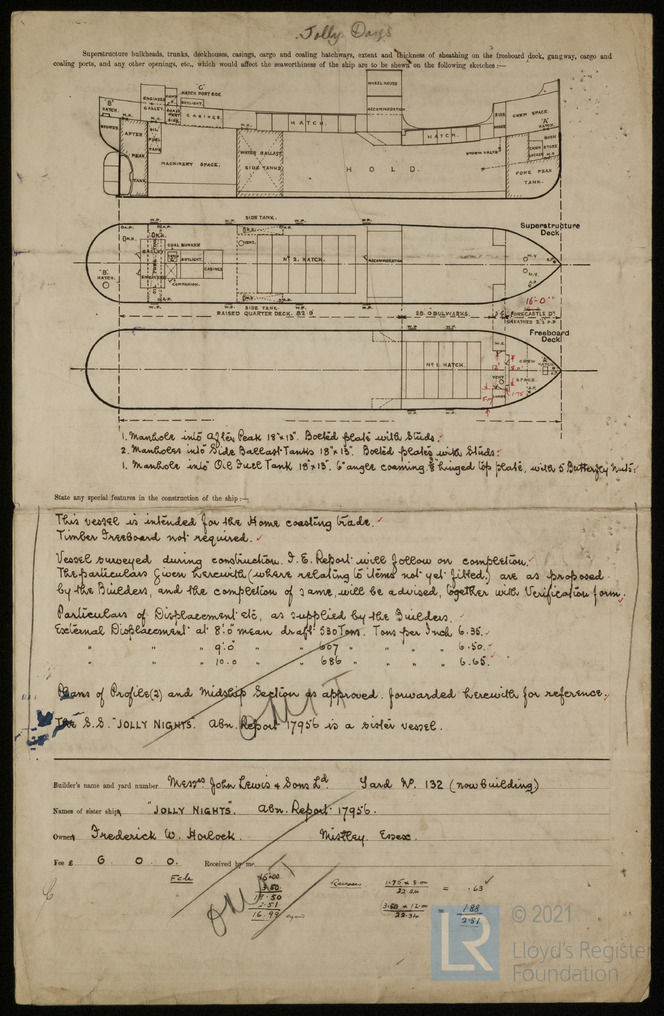 Jolly Days
Superstructure bulkheads, trunks, deckhouses, casings, cargo and coaling hatchways, extent and thickness of sheathing on the freeboard deck, gangway, cargo and
coaling ports, and any other openings, etc., which would affect the seaworthiness of the ship are to be shewn on the following sketches:—
WHEEL HOUSE
ACCOMMODATION
"C"
HATCH PORT SIDE
SKYLIGHT
ENGINEER
GALLEY
CASINGS
"B"
HATCH
STORES
AFTER
PEAK
TANK
OIL
FUEL
TANK
MACHINERY SPACE.
WATER BALLAST
SIDE TANKS
HATCH.
HATCH.
HOLD.
STORM VALVE
SIDE
CREW SPACE.
"A"
HATCH
STORE
FORE PEAK
TANK.
SIDE TANK.
Superstructure
Deck
COAL BUNKER
SKYLIGHT
CASINGS
COMPANION.
"B"
HATCH.
Nº 2. HATCH.
ACCOMMODATION
SIDE TANK.
RAISED QUARTER DECK. 82'0"
28'0 BULWARKS.
16'-0"
FORECASTLE Dk
SHEATHED 2½" P.P
Freeboard
Deck
Nº 1. HATCH.
CREW
SPACE.
A
HATCH
1. Manhole into After Peak 18"x13". Bolted plate with Studs.
2. Manholes into Side Ballast Tanks 18"x13". Bolted plates with Studs.
1. Manhole into Oil Fuel Tank 18"x13". 6" angle coaming. hinged top plate, with 5 Butterfly Nuts.
State any special features in the construction of the ship:—
This vessel is intended for the Home coasting trade.
Timber Freeboard not required.
Vessel surveyed during construction. F.E. Report will follow on completion.
The particulars given herewith (where relating to items not yet fitted) are as proposed
by the Builders, and the completion of same, will be advised, together with Verification form.
Particulars of Displacement etc, as supplied by the Builders.
External Displacement at 8'.0" mean draft 530 Tons. Tons per Inch 6.35.
" " " 9'.0" " " 607 " " " 6.50.
" " " 10.0 " " 686 " " " 6.65.
Plans of Profile(2) and Midship Section as approved. forwarded herewith for reference.
The S.S. "JOLLY NIGHTS. Abn. Report 17956 is a sister vessel.
OMIT
Builder's name and yard number Messrs John Lewis & Sons Ld. Yard Nº. 132 (now building)
Names of sister ships "JOLLY NIGHTS". Abn. Report 17956.
Owners Frederick W. Horlock. Mistley. Essex.
Fee £ 6. 0. 0. Received by me
OMIT
Fcle
16.00
3.50
19.50
2.51
16.99
Recesses
1.75 x 8.00
22.34
= .63
3.50 x 12.00
22.34
= 1.88
2.51
LR
© 2021
Lloyd's Register
Foundation